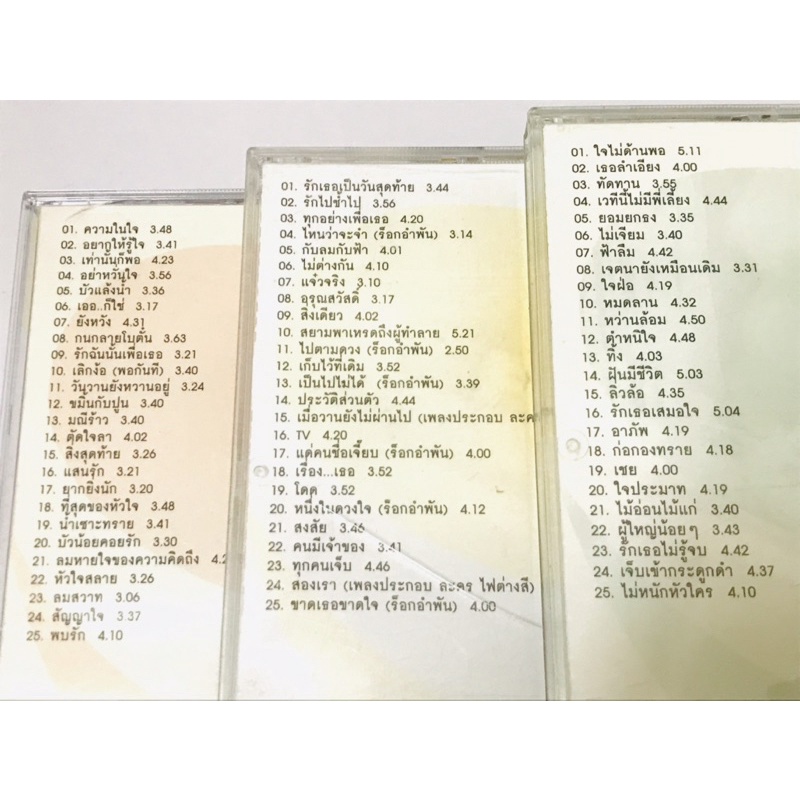 01. ความในใจ 3.48
02. อยากให้รู้ใจ 3.41
03. เท่านั้นก็พอ 4.23
04. อย่าหวั่นใจ 3.56
05. บัวแล้งน้ำ 3.36
06. เออ..ก็ใช่ 3.17
07. ยังหวัง 4.31
08. กนกลายโบตั๋น 3.63
09. รักฉันนั้นเพื่อเธอ 3.21
10. เลิกง้อ (พอกันที) 3.40
11. วันวานยังหวานอยู่ 3.24
12. ขมิ้นกับปูน 3.40
13. มณีร้าว 3.40
14. ตัดใจลา 4.02
15. สิ่งสุดท้าย 3.26
16. แสนรัก 3.21
17. ยากยิ่งนัก 3.20
18. ที่สุดของหัวใจ 3.48
19. น้ำเซาะทราย 3.41
20. บัวน้อยคอยรัก 3.30
21. ลมหายใจของความคิดถึง
22. หัวใจสลาย 3.26
23. ลมสวาท 3.06
24. สัญญาใจ 3.37
25. พบรัก 4.10
01. รักเธอเป็นวันสุดท้าย 3.44
02. รักไปช้ำไป 3.56
03. ทุกอย่างเพื่อเธอ 4.20
04. ไหนว่าจะจำ (ร็อกอำพัน) 3.14
05. กับลมกับฟ้า 4.01
06. ไม่ต่างกัน 4.10
07. แจ๋วจริง 3.10
08. อรุณสวัสดิ์ 3.17
09. สิ่งเดียว 4.02
10. สยามพาเหรดถึงผู้ทำลาย 5.21
11. ไปตามดวง (ร็อกอำพัน) 2.50
12. เก็บไว้ที่เดิม 3.52
13. เป็นไปไม่ได้ (ร็อกอำพัน) 3.39
14. ประวัติส่วนตัว 4.44
15. เมื่อวานยังไม่ผ่านไป (เพลงประกอบ
16. TV 4.20
17. แด่คนชื่อเจี๊ยบ (ร็อกอำพัน) 4.00
18. เรื่อง...เธอ 3.52
19. โดด 3.52
20. หนึ่งในดวงใจ (ร็อกอำพัน) 4.12
21. สงสัย 3.46
22. คนมีเจ้าของ 3.41
23. ทุกคนเจ็บ 4.46
24. สองเรา (เพลงประกอบ ละคร ไฟต่างสี)
25. ขาดเธอขาดใจ (ร็อกอำพัน) 4.00
01. ใจไม่ด้านพอ 5.11
02. เธอลำเอียง 4.00
03. ทัดทาน 3.55
04. เวทีนี้ไม่มีพี่เลี้ยง 4.44
05. ยอมยกธง 3.35
06. ไม่เจียม 3.40
07. ฟ้าลืม 4.42
08. เจตนายังเหมือนเดิม 3.31
09. ใจฝ่อ 4.19
10. หมดลาน 4.32
11. หว่านล้อม 4.50
12. ตำหนิใจ 4.48
13. ทิ้ง 4.03
14. ฝุ่นมีชีวิต 5.03
15. ลิ่วล้อ 4.35
16. รักเธอเสมอใจ 5.04
17. อาภัพ 4.19
18. ก่อกองทราย 4.18
19. เชย 4.00
20. ใจประมาท 4.19
21. ไม้อ่อนไม้แก่ 3.40
22. ผู้ใหญ่น้อยๆ 3.43
23. รักเธอไม่รู้จบ 4.42
24. เจ็บเข้ากระดูกดำ 4.37
25. ไม่หนักหัวใคร 4.10